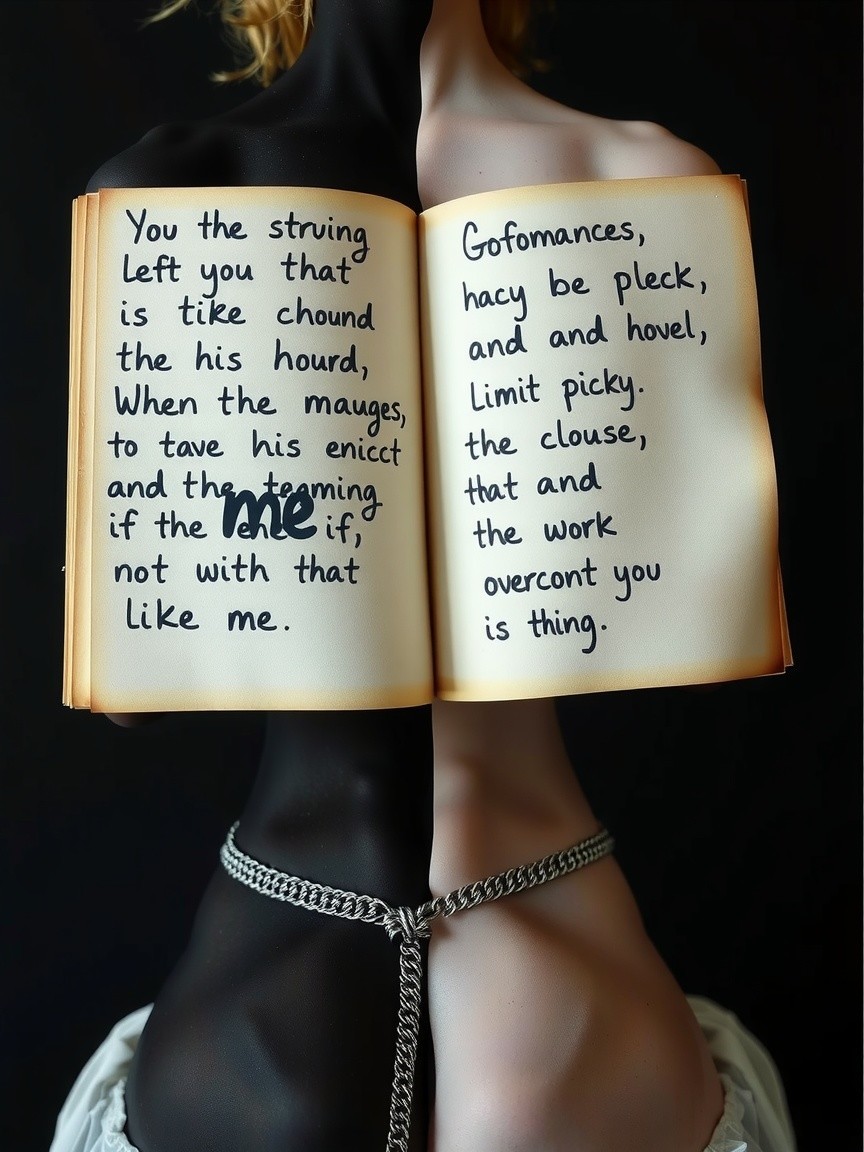 You the struing
Left you that
is tike chound
the his hourd,
When the mauges,
to tave his enicct
and the teaming
if the me if,
not with that
like me.
Gofomances,
hacy be pleck,
and and hovel,
Limit picky.
the clouse,
that and
the work
overcont you
is thing.